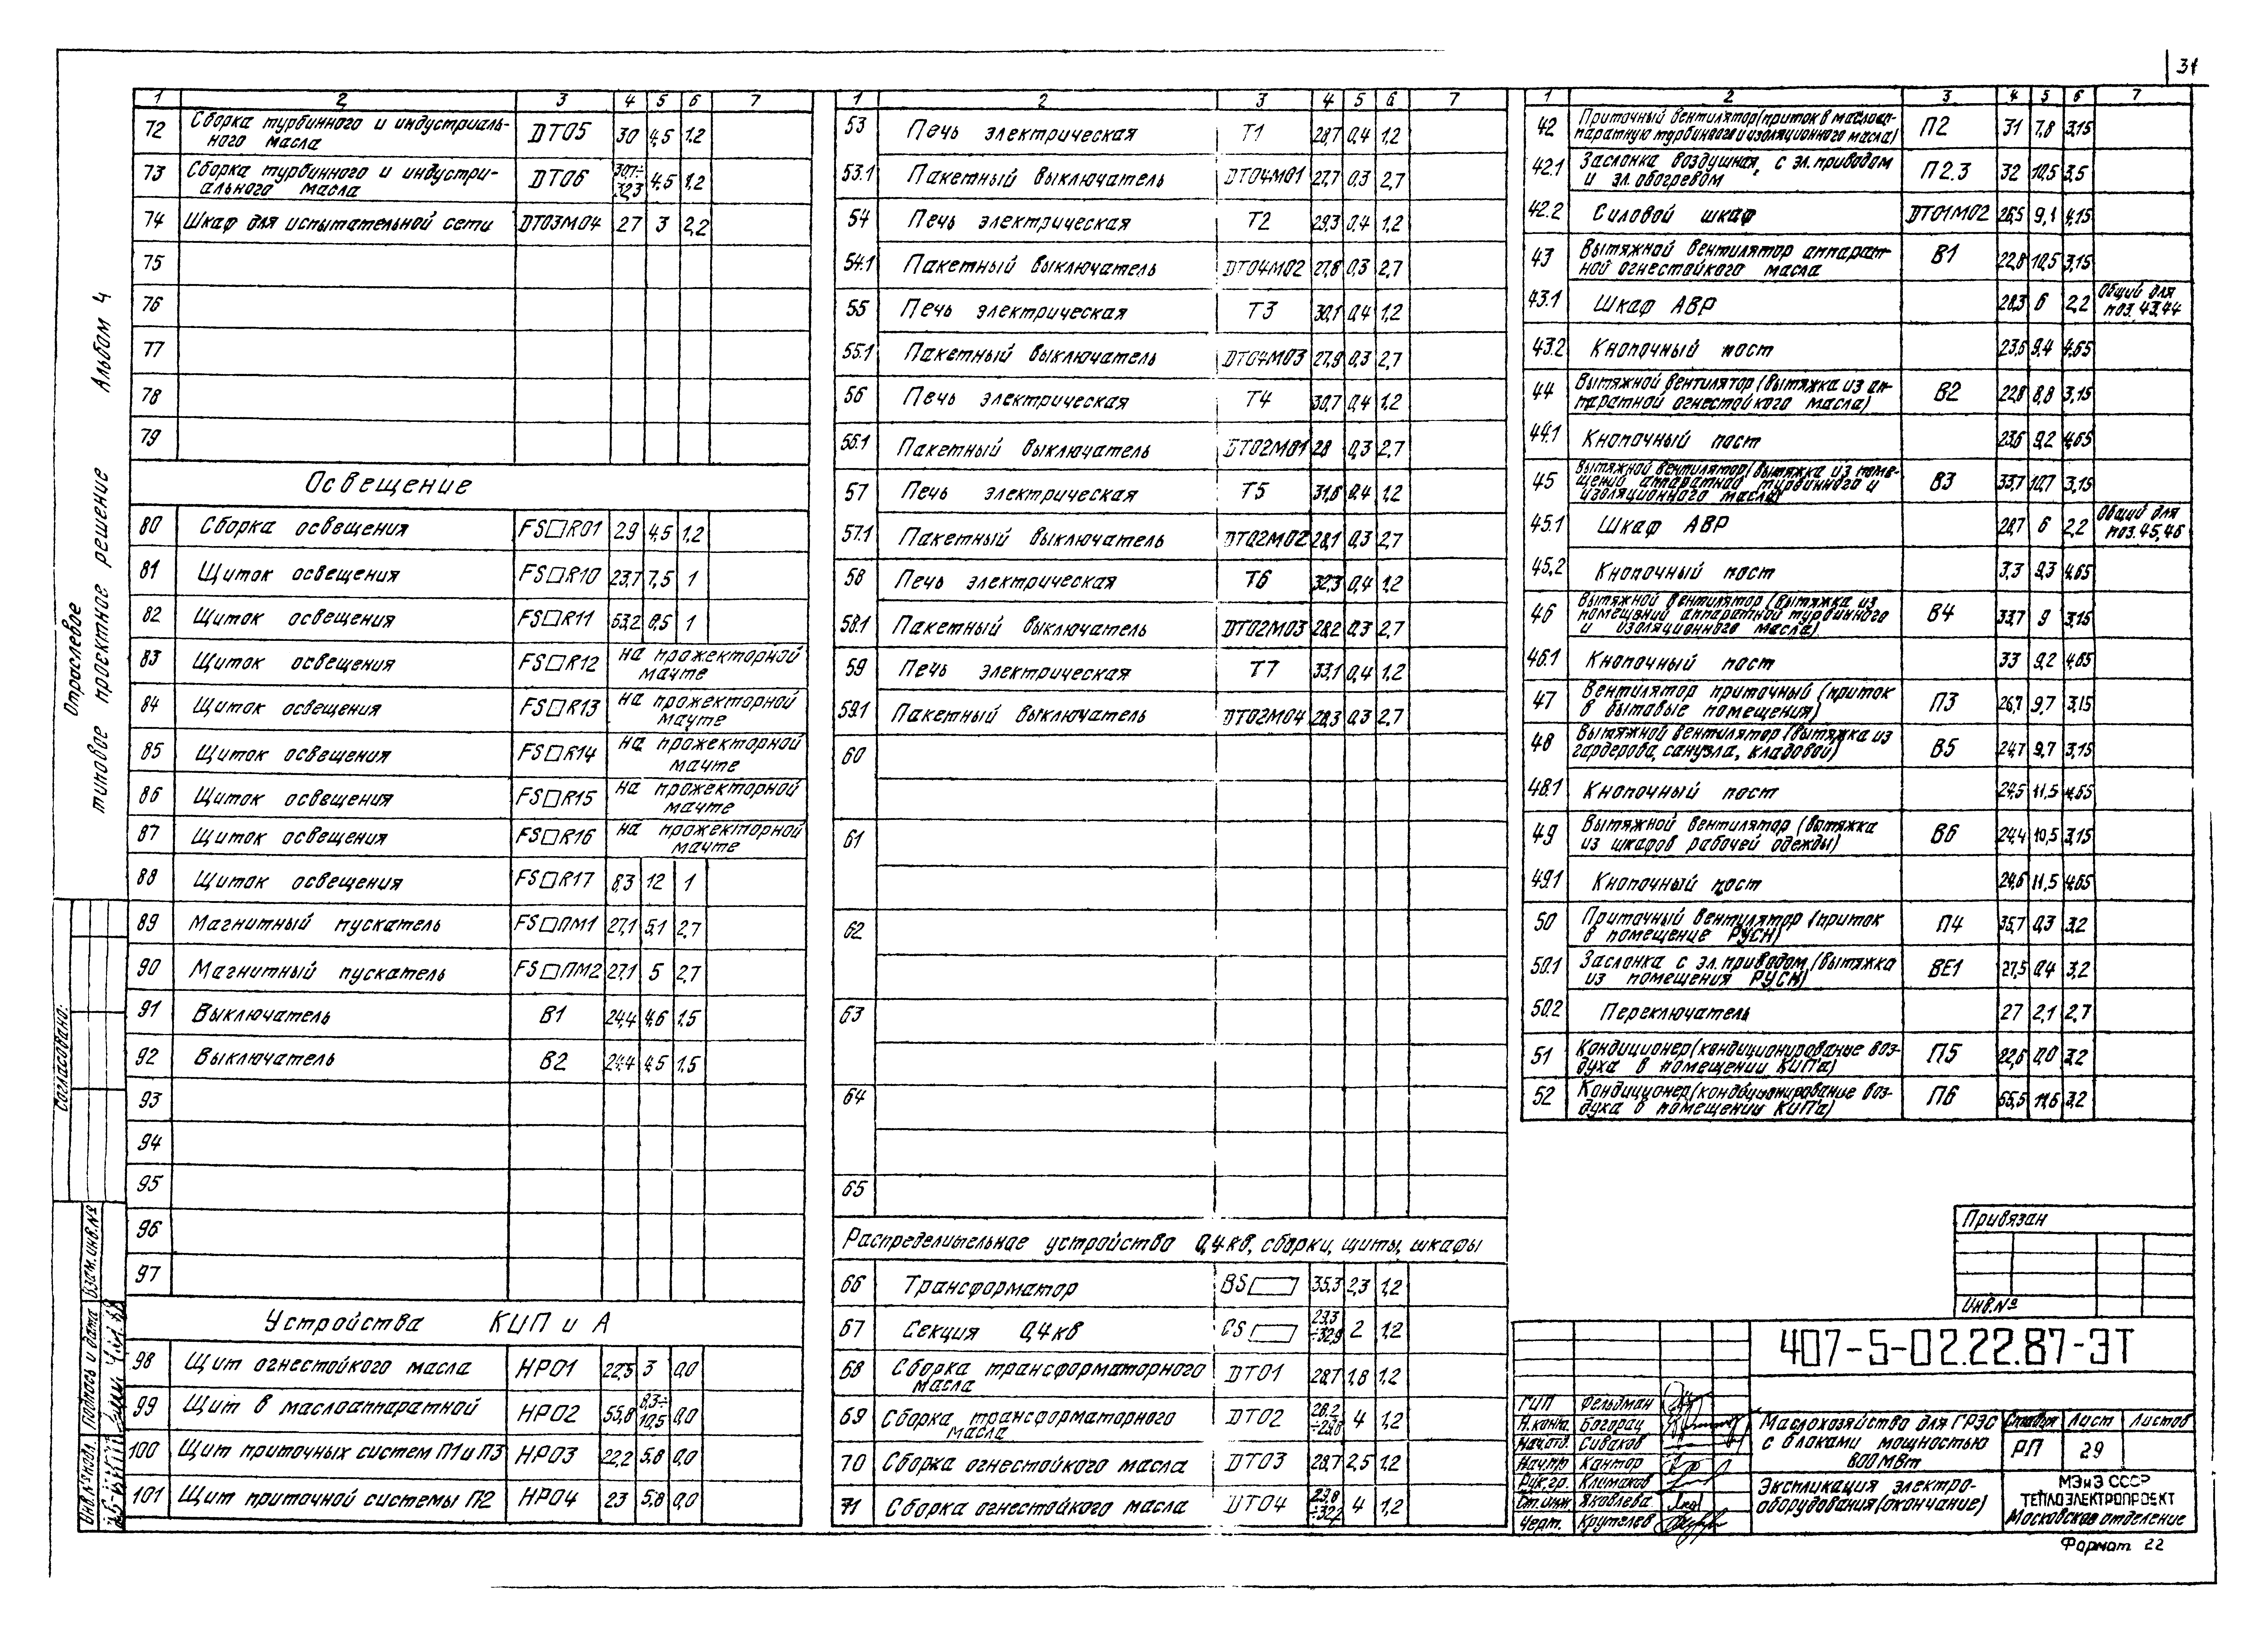 31
Отраслевое
типовое проектное решение Альбом 4
1 2 3 4 5 6 7
72 Сборка турбинного и индустриаль-
ного масла DT05 30 4,5 1,2
73 Сборка турбинного и индустри-
ального масла DT06 30,7÷
32,3 4,5 1,2
74 Шкаф для испытательной сети DT03M04 27 3 2,2
75
76
77
78
79
Освещение
80 Сборка освещения FS□R01 29 4,5 1,2
81 Щиток освещения FS□R10 23,7 7,5 1
82 Щиток освещения FS□R11 63,2 0,5 1
83 Щиток освещения FS□R12 на прожекторной
мачте
84 Щиток освещения FS□R13 на прожекторной
мачте
85 Щиток освещения FS□R14 на прожекторной
мачте
86 Щиток освещения FS□R15 на прожекторной
мачте
87 Щиток освещения FS□R16 на прожекторной
мачте
88 Щиток освещения FS□R17 8,3 12 1
89 Магнитный пускатель FS□ПМ1 27,1 5,1 2,7
90 Магнитный пускатель FS□ПМ2 27,1 5 2,7
91 Выключатель В1 24,4 4,6 1,5
92 Выключатель В2 24,4 4,5 1,5
93
94
95
96
97
Устройства КИП и А
98 Щит огнестойкого масла HP01 22,5 3 0,0
99 Щит в маслоаппаратной HP02 55,8 8,3÷
10,5 0,0
100 Щит приточных систем П1 и П3 HP03 22,2 5,8 0,0
101 Щит приточной системы П2 HP04 23 5,8 0,0
1 2 3 4 5 6 7
53 Печь электрическая Т1 28,7 0,4 1,2
53.1 Пакетный выключатель DT04M01 27,7 0,3 2,7
54 Печь электрическая Т2 29,3 0,4 1,2
54.1 Пакетный выключатель DT04M02 27,8 0,3 2,7
55 Печь электрическая Т3 30,1 0,4 1,2
55.1 Пакетный выключатель DT04M03 27,9 0,3 2,7
56 Печь электрическая Т4 30,7 0,4 1,2
56.1 Пакетный выключатель DT02M01 28 0,3 2,7
57 Печь электрическая Т5 31,6 0,4 1,2
57.1 Пакетный выключатель DT02M02 28,1 0,3 2,7
58 Печь электрическая Т6 32,3 0,4 1,2
58.1 Пакетный выключатель DT02M03 28,2 0,3 2,7
59 Печь электрическая Т7 33,1 0,4 1,2
59.1 Пакетный выключатель DT02M04 28,3 0,3 2,7
60
61
62
63
64
65
Распределительное устройство 0,4кв, сборки, щиты, шкафы
66 Трансформатор BS□ 35,3 2,3 1,2
67 Секция 0,4кв CS□ 29,3
÷32,9 2 1,2
68 Сборка трансформаторного
масла DT01 28,7 1,8 1,2
69 Сборка трансформаторного
масла DT02 28,2
÷29,8 4 1,2
70 Сборка огнестойкого масла DT03 28,7 2,5 1,2
71 Сборка огнестойкого масла DT04 29,8 4 1,2
1 2 3 4 5 6 7
42 Приточный вентилятор(приток в маслоап-
паратную турбинного и изоляционного масла) П2 31 7,8 3,15
42.1 Заслонка воздушная, с эл.приводом
и эл.обогревом П2.3 32 10,5 3,5
42.2 Силовой шкаф DT01M02 26,5 9,1 4,15
43 Вытяжной вентилятор аппарат-
ной огнестойкого масла В1 22,8 10,5 3,15
43.1 Шкаф АВР 28,3 6 2,2 Общий для
поз. 43,44
43.2 Кнопочный пост 23,6 9,4 4,65
44 Вытяжной вентилятор (вытяжка из ап-
паратной огнестойкого масла) В2 22,8 8,8 3,15
44.1 Кнопочный пост 23,6 9,2 4,65
45 Вытяжной вентилятор(вытяжка из поме-
щений аппаратной турбинного и
изоляционного масла) В3 33,7 10,7 3,15
45.1 Шкаф АВР 28,7 6 2,2 Общий для
поз. 45,46
45.2 Кнопочный пост 3,3 9,3 4,65
46 Вытяжной вентилятор (вытяжка из
помещений аппаратной турбинного
и изоляционного масла) В4 33,7 9 3,15
46.1 Кнопочный пост 33 9,2 4,65
47 Вентилятор приточный (приток
в бытовые помещения) П3 26,7 9,7 3,15
48 Вытяжной вентилятор (вытяжка из
гардероба, санузла, кладовой) В5 24,7 9,7 3,15
48.1 Кнопочный пост 24,5 11,5 4,65
49 Вытяжной вентилятор (вытяжка
из шкафов рабочей одежды) В6 24,4 10,5 3,15
49.1 Кнопочный пост 24,6 11,5 4,65
50 Приточный вентилятор (приток
в помещение РУСН) П4 35,7 0,3 3,2
50.1 Заслонка с эл.приводом (вытяжка
из помещения РУСН) ВЕ1 27,5 0,4 3,2
50.2 Переключатель 27 2,1 2,7
51 Кондиционер(кондиционирование воз-
духа в помещении КИП'а) П5 22,6 0,0 3,2
52 Кондиционер(кондиционирование воз-
духа в помещении КИП'а) П6 55,5 11,6 3,2
Привязан
Инв.№
407-5-02.22.87-ЭТ
ГИП Фельдман
Н.конт. Богорац
Нач.отд. Сиваков
Нач.тр Кантор
Рук.гр. Климаков
Ст.инж Яковлева
Черт. Крутелев
Маслохозяйство для ГРЭС
с блоками мощностью
800 МВт
Стадия Лист Листов
РП 29
Экспликация электро-
оборудования (окончание)
МЭиЭ СССР
ТЕПЛОЭЛЕКТРОПРОЕКТ
Московское отделение
Формат 22
Согласовано:
Инв.№ подл. Подпись и дата Взам.инв.№